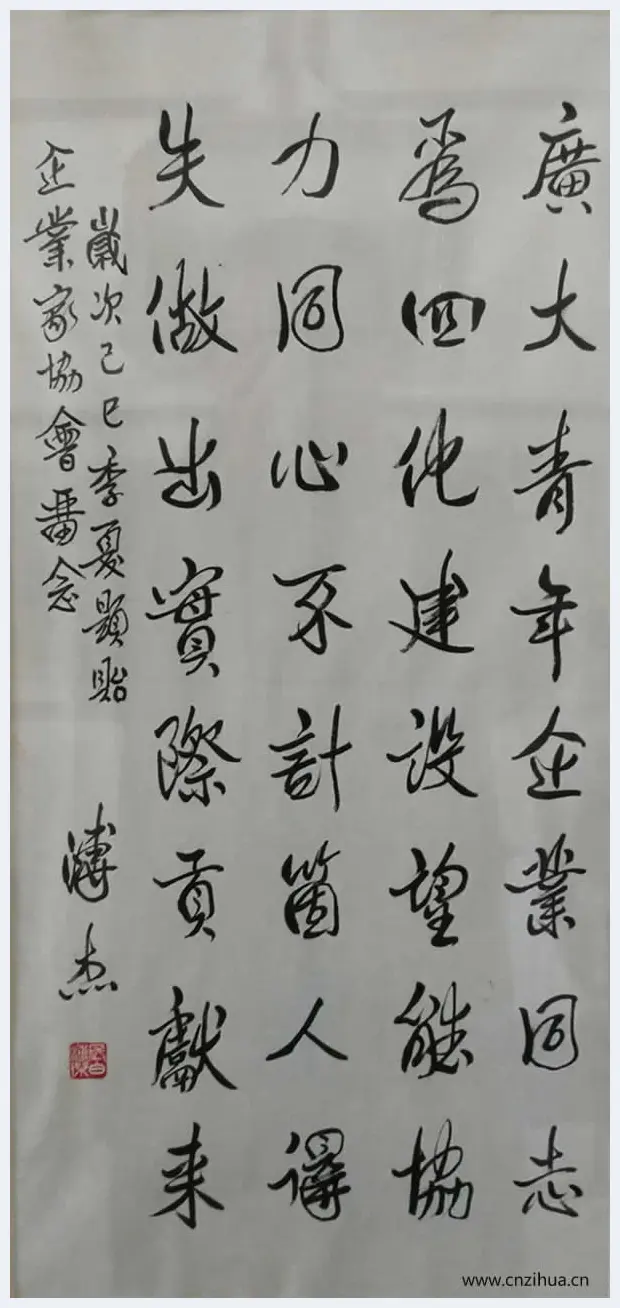 廣大青年企業同志
爲四化建設望能協
力同心不計箇人得
失做出實際貢獻来
歲次己巳季夏題貽
企業家協會畱念
溥杰
www.cnzihua.cn